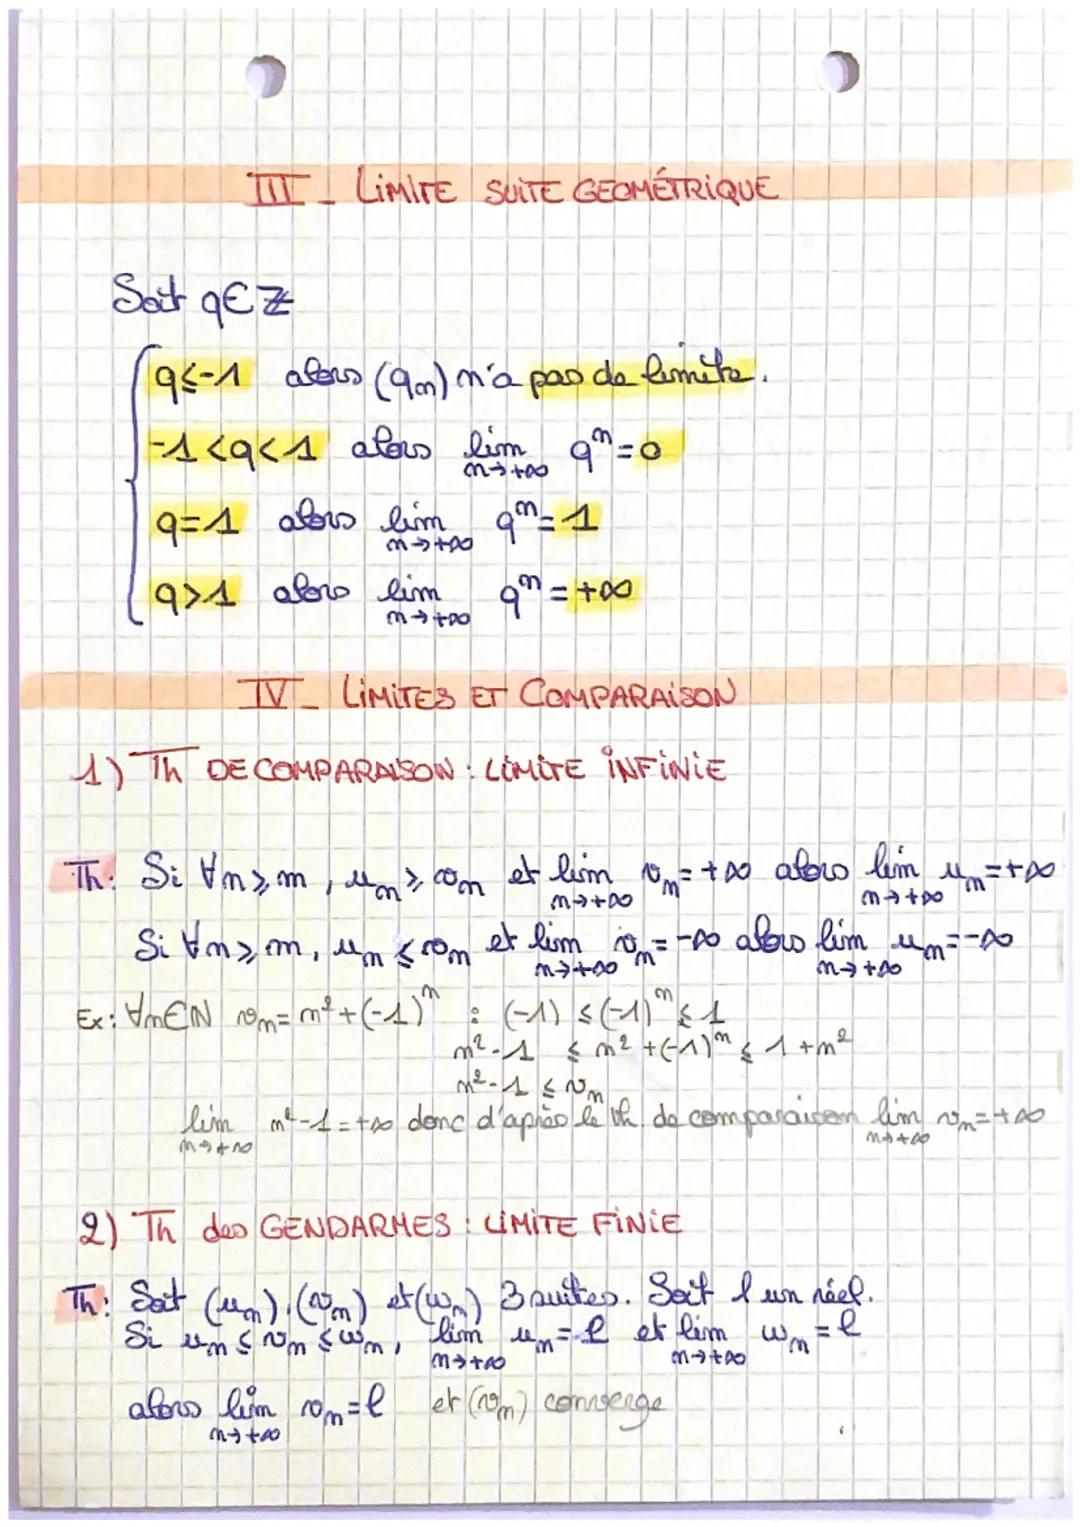 III_ LIMITE SUITE GEOMÉTRIQUE
Soit q∈ℤ
q≤-1 alors (qn) n'a pas de limite.
-1<q<1 alors lim n→+∞ qⁿ=0
q=1 alors lim n→+∞ qⁿ=1
q>1 alors lim n→+∞ qⁿ=+∞
IV_ LIMITES ET COMPARAISON
1) Th DE COMPARAISON : LIMITE INFINIE
Th: Si ∀n≥m, un≥vn et lim n→+∞ vn=+∞ alors lim n→+∞ un=+∞
Si ∀n≥m, un≤vn et lim n→+∞ vn=-∞ alors lim n→+∞ un=-∞
Ex: ∀n∈N vn=n²+(-1)ⁿ : (-1)≤(-1)ⁿ≤1
n²-1 ≤ n²+(-1)ⁿ ≤ 1+n²
n²-1 ≤ vn
lim n→+∞ n²-1=+∞ donc d'après le th de comparaison lim n→+∞ vn=+∞
2) Th des GENDARMES : LIMITE FINIE
Th: Soit (un), (vn) et (wn) 3 suites. Soit l un réel.
Si un≤vn≤wn, lim n→+∞ un=l et lim n→+∞ wn=l
alors lim n→+∞ vn=l et (vn) converge